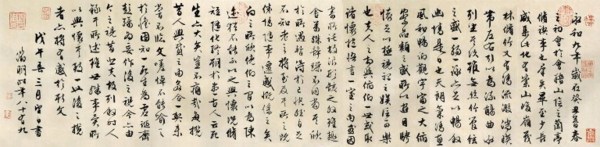 永和九年歲在癸丑暮春
之初會于會稽山陰之蘭亭
脩禊事也羣賢畢至少長
咸集此地有崇山峻領茂
林脩竹又有清流激湍映
帶左右引以為流觴曲水
列坐其次雖無絲竹管絃
之盛一觴一詠亦足以暢敘
幽情是日也天朗氣清惠
風和暢仰觀宇宙之大俯
察品類之盛所以遊目騁
懷足以極視聽之娛信可樂
也夫人之相與俯仰一世或取
諸懷抱悟言一室之內或因
寄所託放浪形骸之外雖趣
舍萬殊靜躁不同當其欣
於所遇暫得於己快然自足
不知老之將至及其所之
既倦情隨事遷感慨係之矣
向之所欣俛仰之間以為陳
迹猶不能不以之興懷況脩
短隨化終期於盡古人云死
生亦大矣豈不痛哉每攬
昔人興感之由若合一契未
嘗不臨文嗟悼不能喻之
於懷固知一死生為虛誕齊
彭殤為妄作後之視今亦由
今之視昔悲夫故列敘時人
錄其所述雖世殊事異所
以興懷其致一也後之攬
者亦將有感於斯文
戊午春三月望日書
徵明時年八十有九